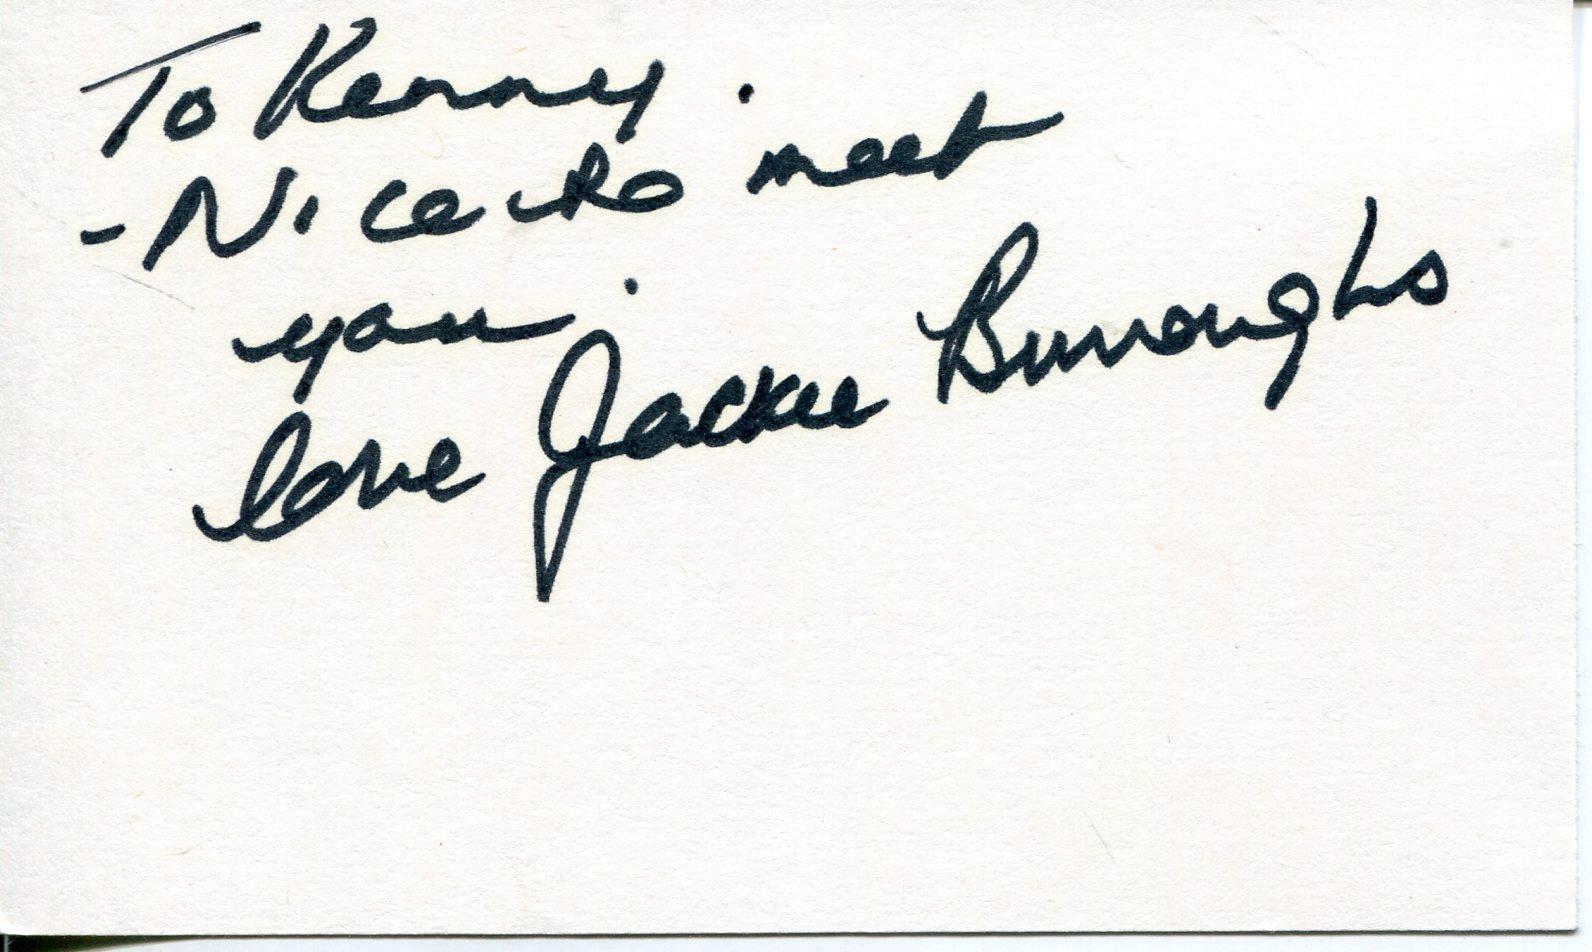 To Kenny.
- Nice to meet
you.
love Jackie Burroughs